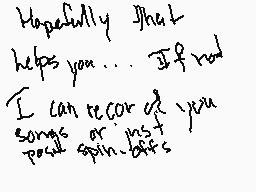 Hopefully that
helps you... If not
I can record you
songs or just
post spin-offs